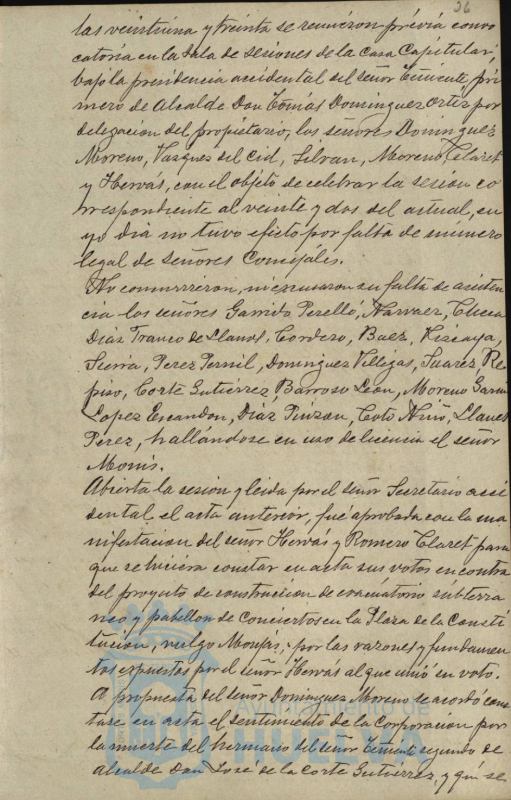 26
las veintiuna y treinta se reunieron prévia convo
catoria en la Sala de sesiones de la Casa Capitular,
bajo la presidencia accidental del señor Teniente pri
mero de Alcalde Don Tomás Dominguez Ortiz por
delegacion del propietario, los señores Dominguez
Moreno, Vazquez del Cid, Silvan, Moreno, Claret
y Hervás, con el objeto de celebrar la sesion co
rrespondiente al veinte y dos del actual, cu
yo dia no tuvo efecto por falta de número
legal de señores Concejales.
No concurrieron, ni excusaron su falta de asisten
cia los señores Garrido Perelló, Narvaez, Checa
Diaz Franco de Llanos, Cordero, Baez, Vizcaya,
Sierra, Perez Pernil, Dominguez Villegas, Suarez, Re
piso, Corte Gutiérrez, Barroso Leon, Moreno Garcia
Lopez Escandon, Diaz Pinzon, Coto Nino, Llanes
Perez, hallándose en uso de licencia el señor
Monis.
Abierta la sesion y leida por el señor Secretario acci
dental el acta anterior, fué aprobada con la ma
nifestacion del señor Hervás y Romero Claret para
que se hiciera constar en acta sus votos en contra
del proyecto de construccion de evacuatorio subterra
neo y pabellon de conciertos en la Plaza de la Consti
tucion, vulgo Monjas, por las razones y fundamen
tos expuestos por el señor Hervás al que unió su voto.
A propuesta del señor Dominguez Moreno se acordó cons
tase en acta el sentimiento de la Corporacion por
la muerte del hermano del señor Teniente segundo de
alcalde Don José de la Corte Gutierrez, y que se
Ayuntamiento de
HUELVA